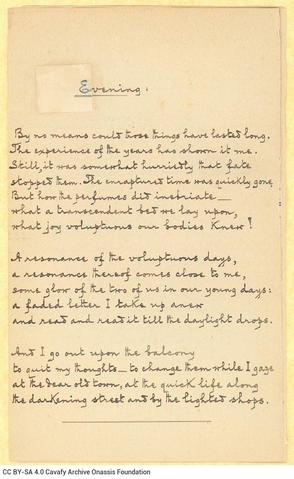 Evening.
By no means could those things have lasted long.
The experience of the years has shown it me.
Still, it was somewhat hurriedly that fate
stopped them. The enraptured time was quickly gone.
But how the perfumes did inebriate —
what a transcendent bed we lay upon,
what joy voluptuous our bodies knew!
A resonance of the voluptuous days,
a resonance thereof comes close to me,
some glow of the two of us in our young days:
a faded letter I take up anew
and read and read it till the daylight drops.
And I go out upon the balcony
to quit my thoughts — to change them while I gaze
at the dear old town, at the quick life along
the darkening street and by the lighted shops.
CC BY-SA 4.0 Cavafy Archive Onassis Foundation